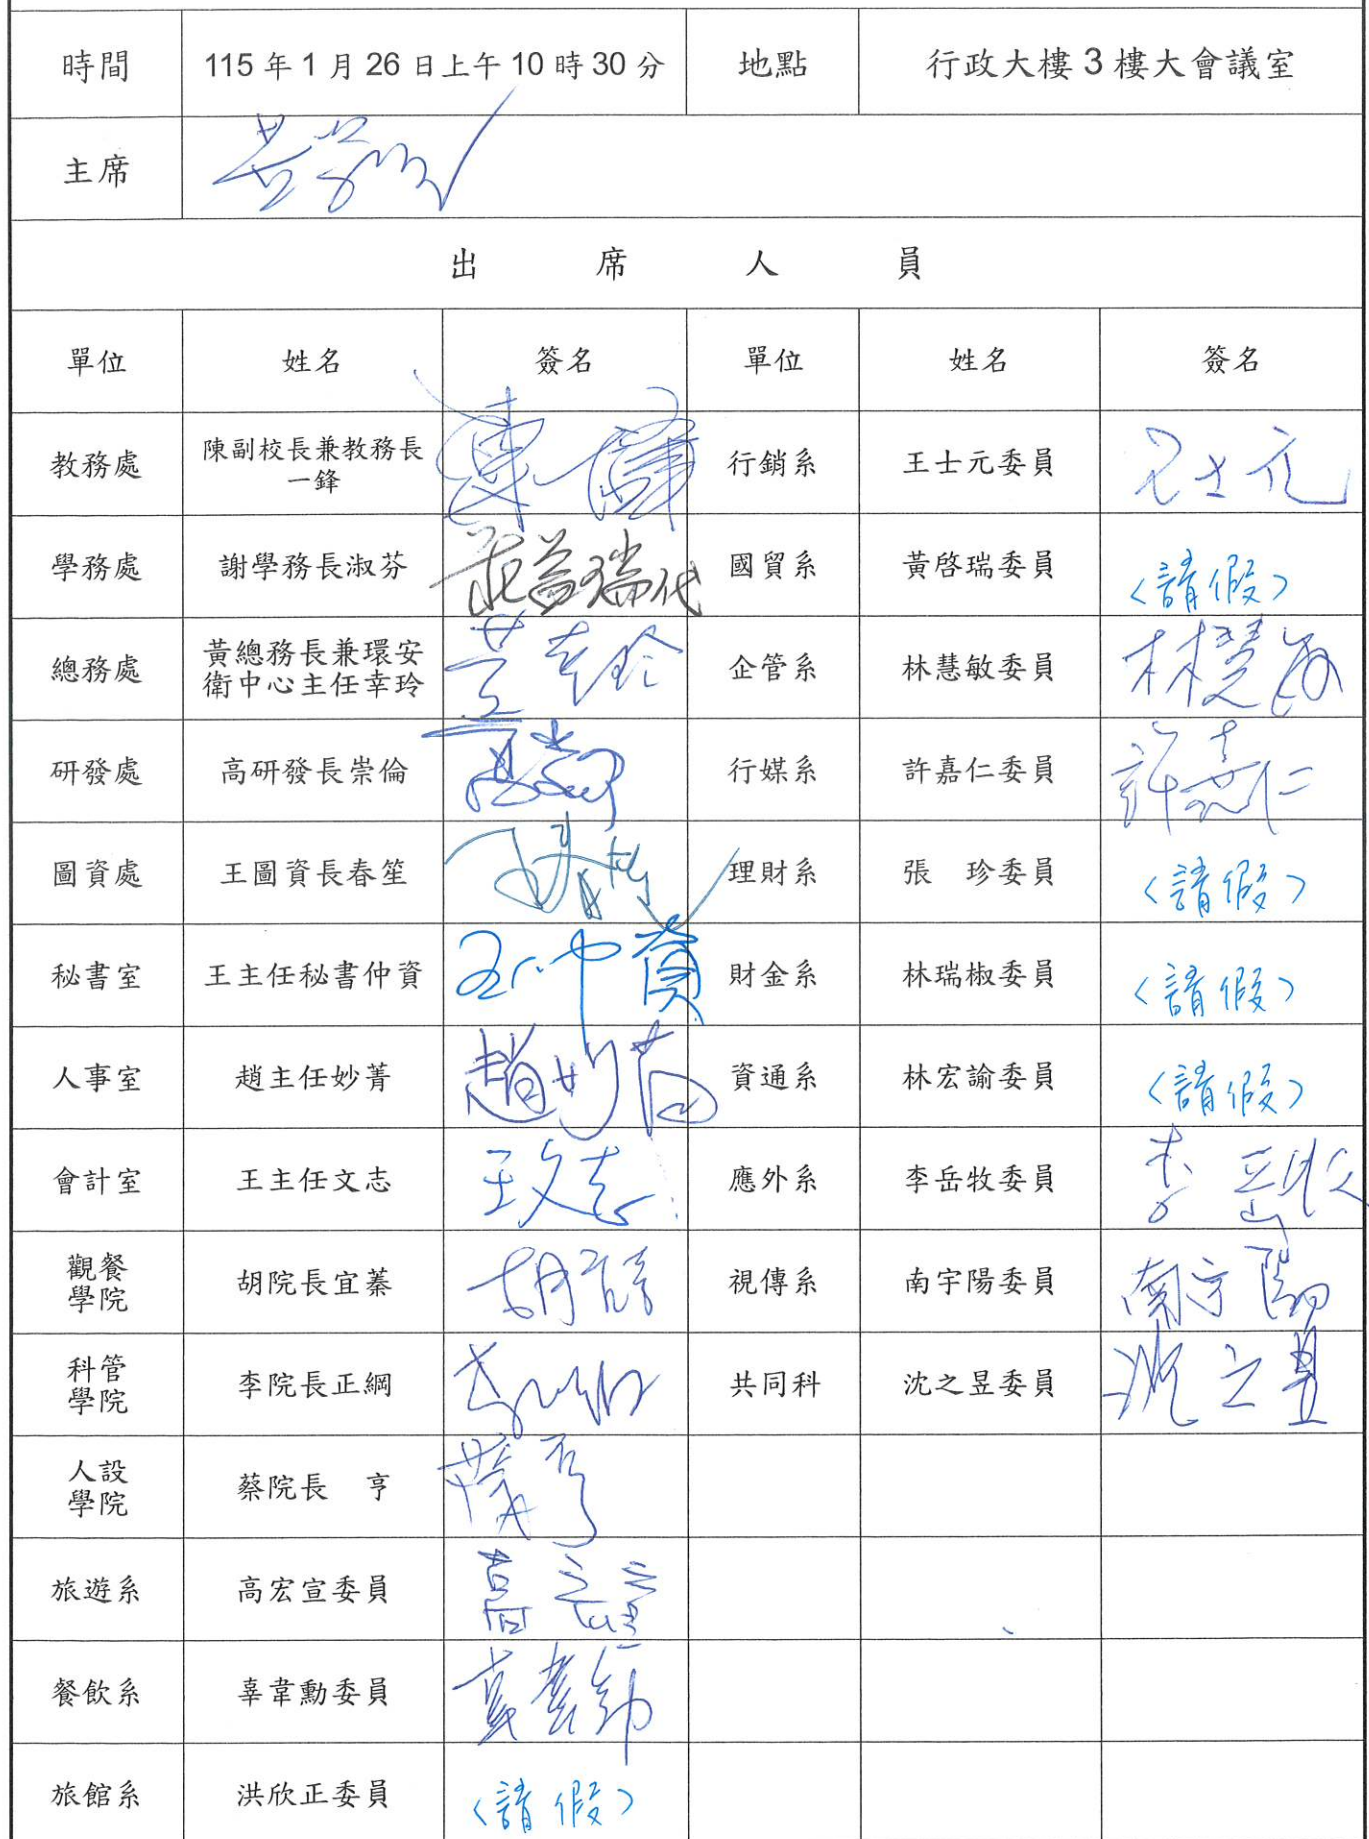 時間 115年1月26日上午10時30分 地點 行政大樓3樓大會議室
主席
出席人員
單位 姓名 簽名 單位 姓名 簽名
教務處 陳副校長兼教務長一鋒 行銷系 王士元委員 王士元
學務處 謝學務長淑芬 國貿系 黃啓瑞委員 〈請假〉
總務處 黃總務長兼環安衛中心主任幸玲 黃幸玲 企管系 林慧敏委員 林慧敏
研發處 高研發長崇倫 行媒系 許嘉仁委員 許嘉仁
圖資處 王圖資長春笙 理財系 張 珍委員 〈請假〉
秘書室 王主任秘書仲資 王仲資 財金系 林瑞椒委員 〈請假〉
人事室 趙主任妙菁 趙妙菁 資通系 林宏諭委員 〈請假〉
會計室 王主任文志 王文志 應外系 李岳牧委員 李岳牧
觀餐學院 胡院長宜蓁 視傳系 南宇陽委員 南宇陽
科管學院 李院長正綱 共同科 沈之昱委員 沈之昱
人設學院 蔡院長 亨 蔡亨
旅遊系 高宏宣委員
餐飲系 辜韋勳委員
旅館系 洪欣正委員 〈請假〉